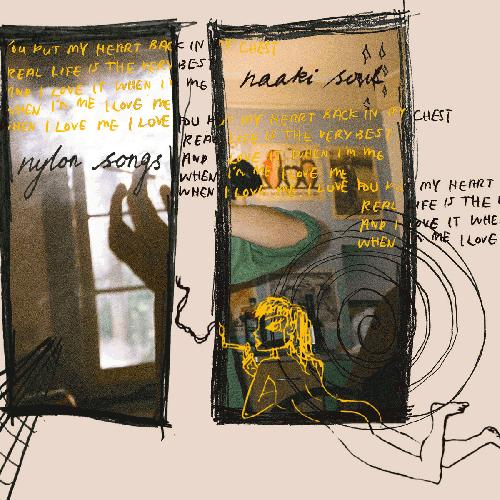 YOU PUT MY HEART BACK IN MY CHEST
REAL LIFE IS THE VERY BEST
AND I LOVE IT WHEN I'M ME
WHEN I'M ME I LOVE ME
WHEN I LOVE ME I LOVE YOU
nylon songs
naaki soul
PUT MY HEART BACK IN MY CHEST
REAL LIFE IS THE VERY BEST
AND I LOVE IT WHEN I'M ME
WHEN I'M ME I LOVE ME
WHEN I LOVE ME I LOVE YOU
MY HEART
REAL LIFE IS THE
AND I LOVE IT WHEN
WHEN I'M ME I LOVE